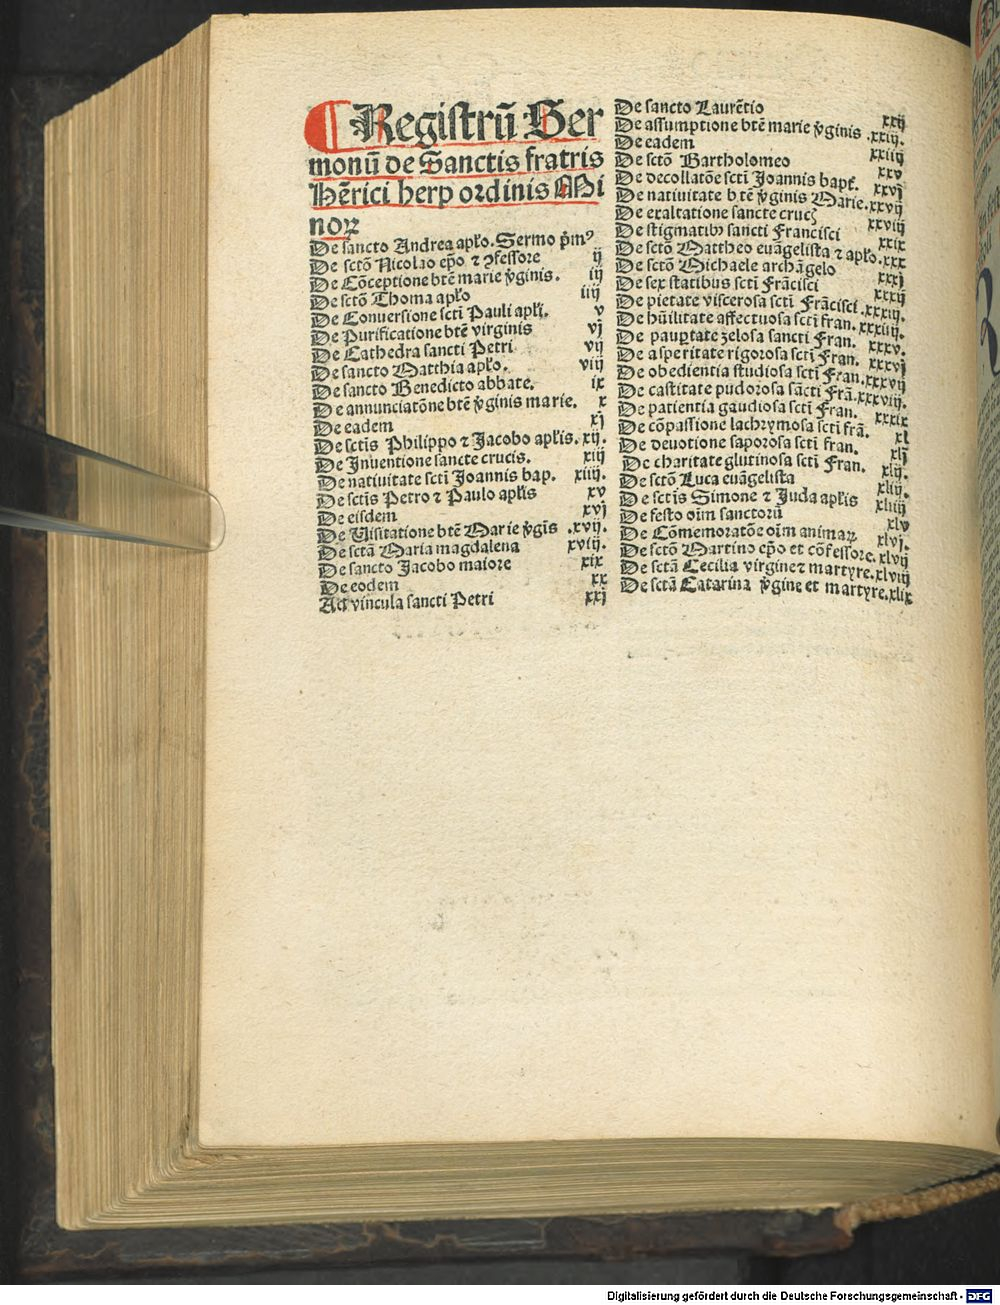 ¶ Registrū Ser
monū de Sanctis fratris
Hērici herp ordinis Mi
noꝝ
De sancto Andrea apło. Sermo p̄mꝰ
De sctō Nicolao ep̄o ⁊ ꝯfessore ij
De Cōceptione btē marie v̄ginis. iij
De sctō Thoma apło iiij
De Conuersione scti Pauli apłi. v
De Purificatione btē virginis vj
De Cathedra sancti Petri vij
De sancto Matthia apło. viij
De sancto Benedicto abbate. ix
De annunciatōne btē v̄ginis marie. x
De eadem xj
De sctis Philippo ⁊ Jacobo apłis. xij.
De Inuentione sancte crucis. xiij
De natiuitate scti Joannis bap. xiiij.
De sctis Petro ⁊ Paulo apłis xv
De eisdem xvj
De Uisitatione btē Marie v̄gīs .xvij.
De sctā Maria magdalena xviij.
De sancto Jacobo maiore xix
De eodem xx
Ad vincula sancti Petri xxj
De sancto Laurētio xxij
De assumptione btē marie v̄ginis .xxiij.
De eadem xxiiij
De sctō Bartholomeo xxv
De decollatōe scti Joannis bapt̄. xxvj
De natiuitate btē v̄ginis Marie. xxvij
De exaltatione sancte crucꝭ xxviij
De stigmatibꝰ sancti Francisci xxix
De sctō Mattheo euāgelista ⁊ apło. xxx
De sctō Michaele archāgelo xxxj
De sex statibus scti Frācisci xxxij
De pietate viscerosa scti Frācisci .xxxiij.
De hūilitate affectuosa scti fran. xxxiiij.
De paup̱tate zelosa sancti Fran. xxxv.
De asperitate rigorosa scti Fran. xxxvj
De obedientia studiosa scti Fran. xxxvij
De castitate pudorosa sācti Frā. xxxviij.
De patientia gaudiosa scti Fran. xxxix
De cōpassione lachrymosa scti frā. xl
De deuotione saporosa scti fran. xlj
De charitate glutinosa scti Fran. xlij.
De sctō Luca euāgelista xliij.
De sctis Simone ⁊ Juda apłis xliiij
De festo oīm sanctorū xlv
De Cōmemoratōe oīm animaꝝ xlvj.
De sctō Martino ep̄o et cōfessore. xlvij
De sctā Cecilia virgine ⁊ martyre. xlviij
De sctā Catarina v̄gine et martyre. xlix
Digitalisierung gefördert durch die Deutsche Forschungsgemeinschaft - DFG